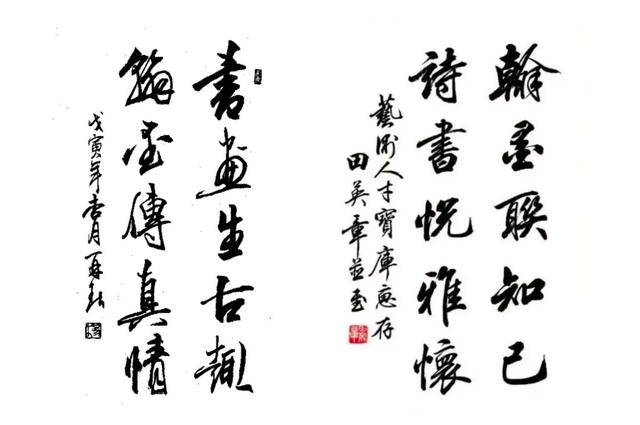 翰墨聯知己
詩書悦雅懷
藝術人才寶庫惠存
田英章並書
書畫生古趣
翰墨傳真情
戊寅年杏月